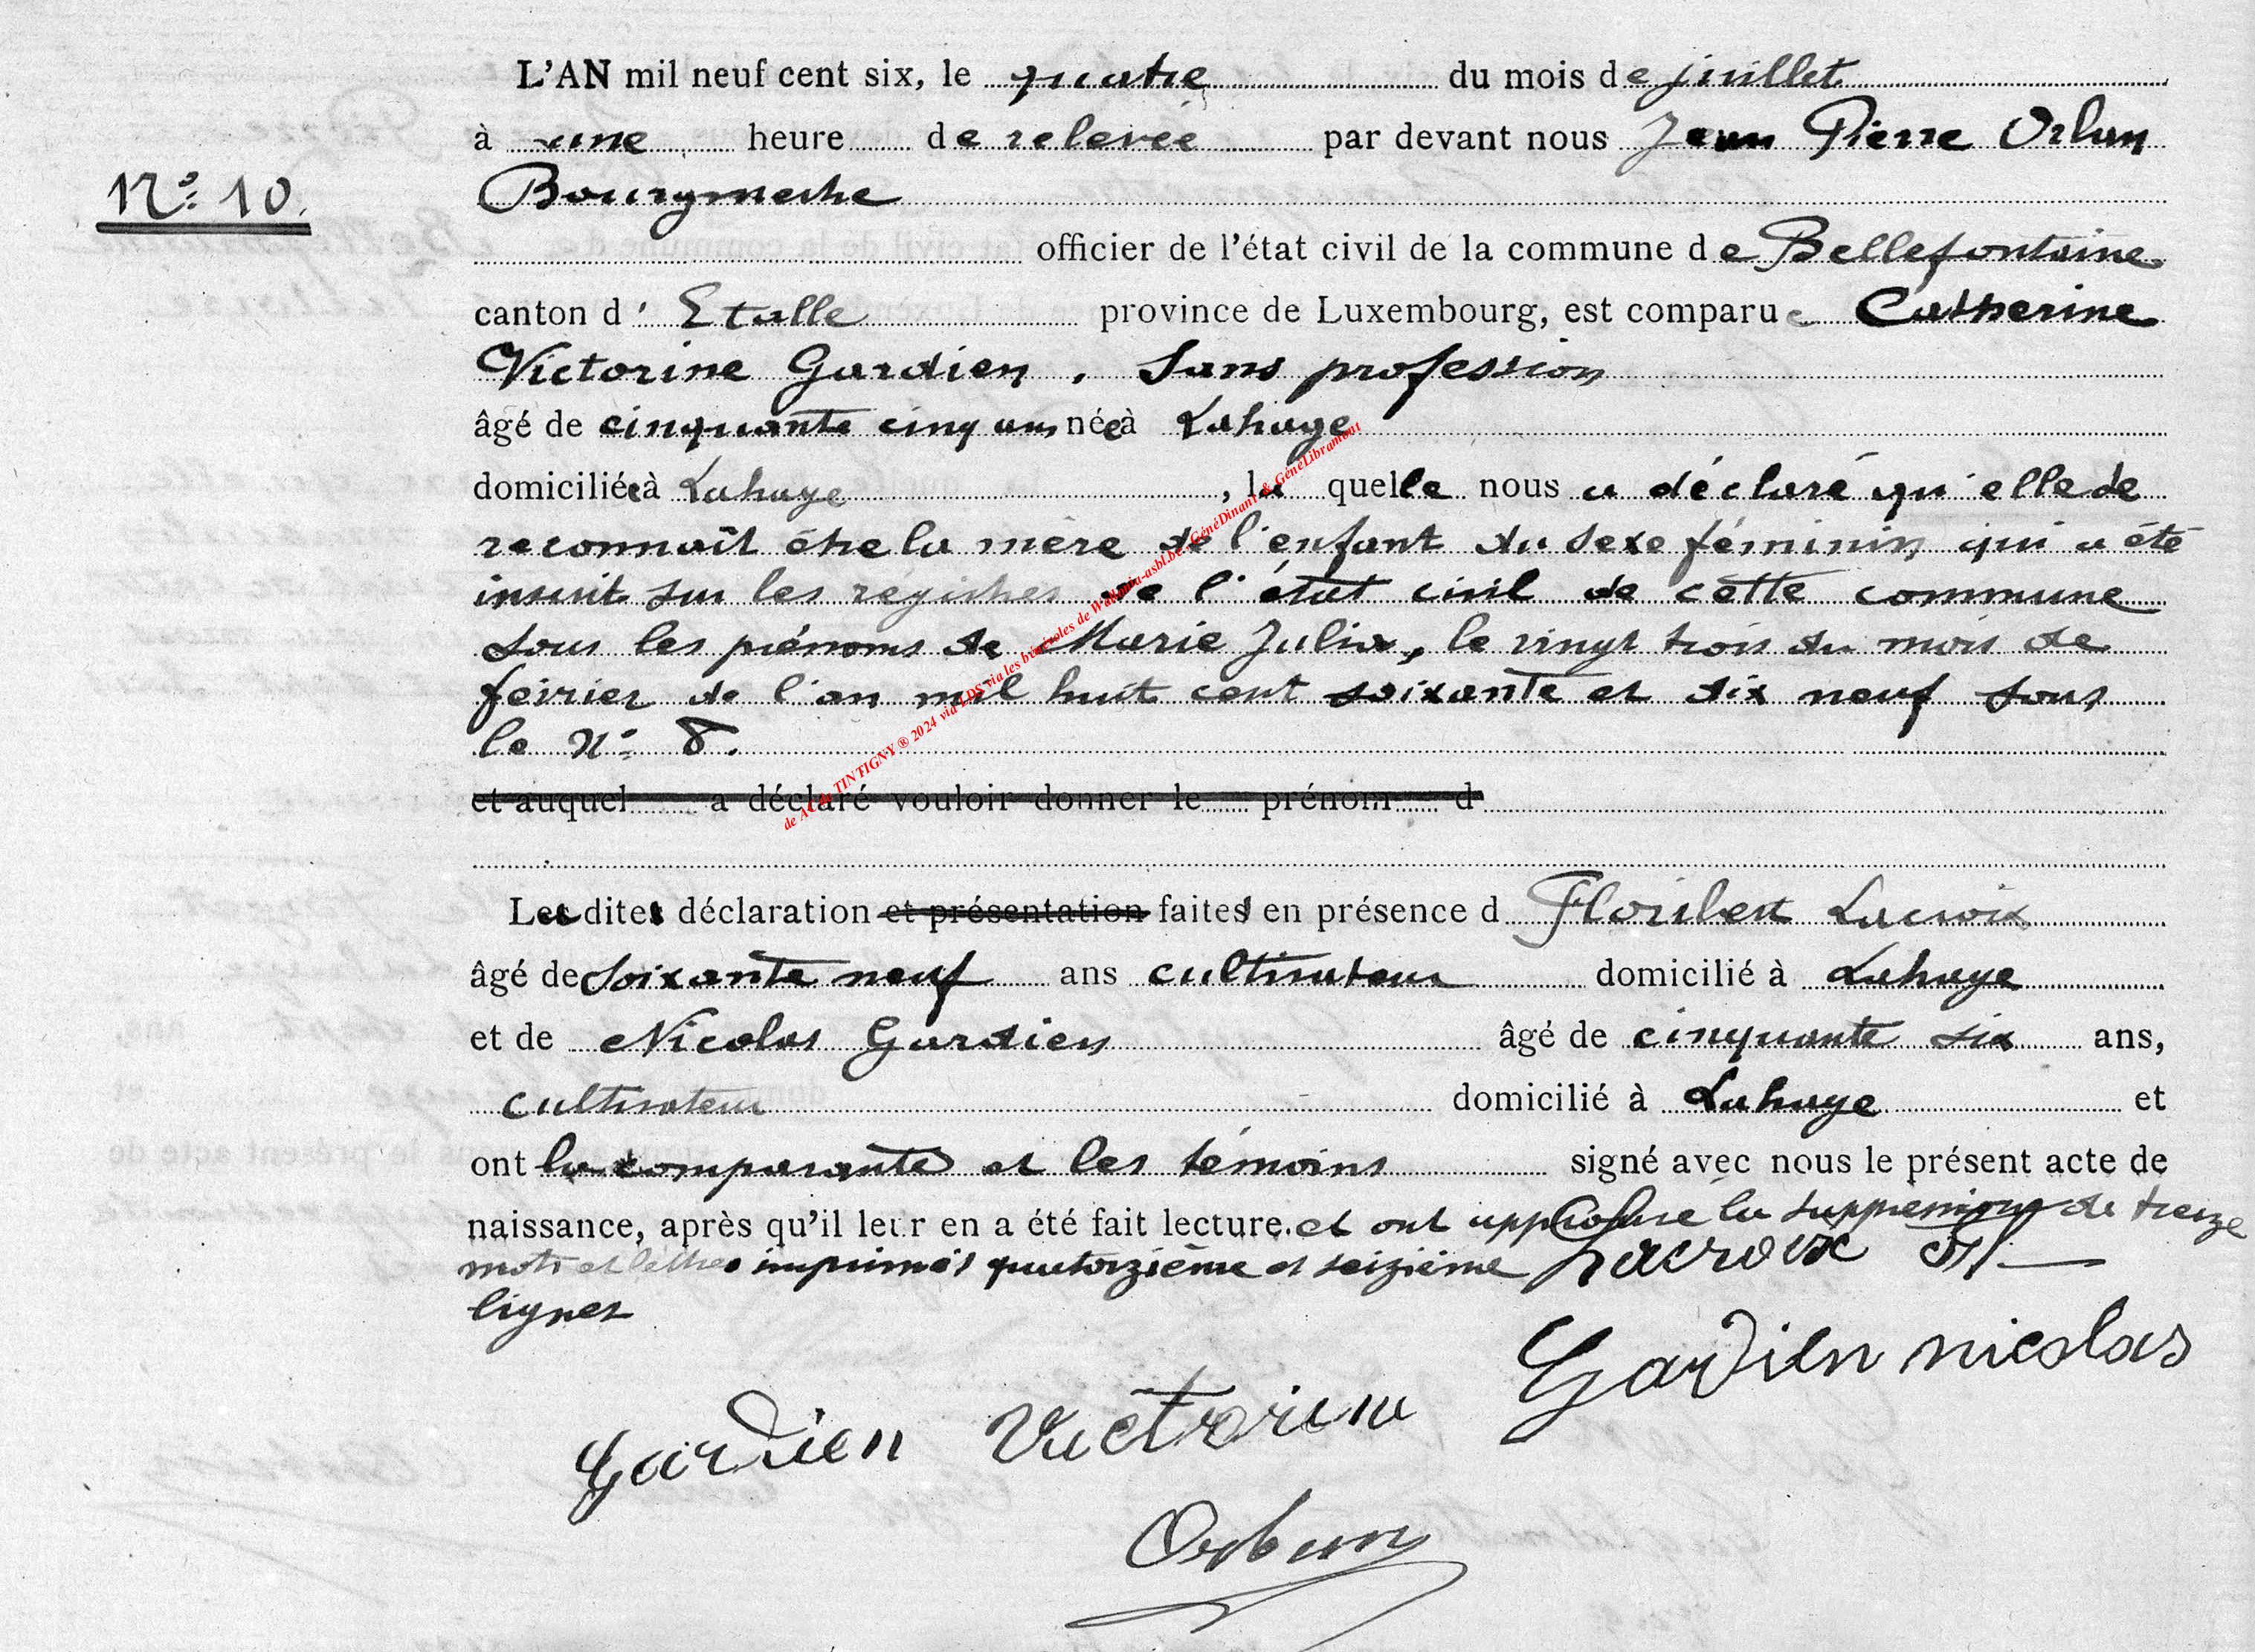 L'AN mil neuf cent six, le quatre du mois de juillet
à une heure de relevée par devant nous Jean Pierre Orban
N° 10.
Bourgmestre
officier de l'état civil de la commune de Bellefontaine
canton d'Etalle province de Luxembourg, est comparue Catherine
Victorine Gardien, sans profession
âgé de cinquante cinq ans née à Lahage
domiciliée à Lahage, la quelle nous a déclaré qu'elle se
reconnaît être la mère de l'enfant du sexe féminin qui a été
inscrit sur les registres de l'état civil de cette commune
sous les prénoms de Marie Julia, le vingt trois du mois de
février de l'an mil huit cent soixante et dix neuf sous
le N° 8.
et auquel a déclaré vouloir donner le prénom d
Les dites déclaration et présentation faites en présence d Floribert Lacroix
âgé de soixante neuf ans cultivateur domicilié à Lahage
et de Nicolas Gardien âgé de cinquante six ans,
cultivateur domicilié à Lahage et
ont la comparante et les témoins signé avec nous le présent acte de
naissance, après qu'il leur en a été fait lecture. et ont approuvé la suppression de treize
mots et lettres imprimés quatorzième et seizième
lignes
Lacroix fl
Gardien nicolas
Gardien Victorine
Orban
de AC de TINTIGNY ® 2024 via LDS via les bénévoles de Wallonia-asbl.be, GénéDinant & GénéLibramont